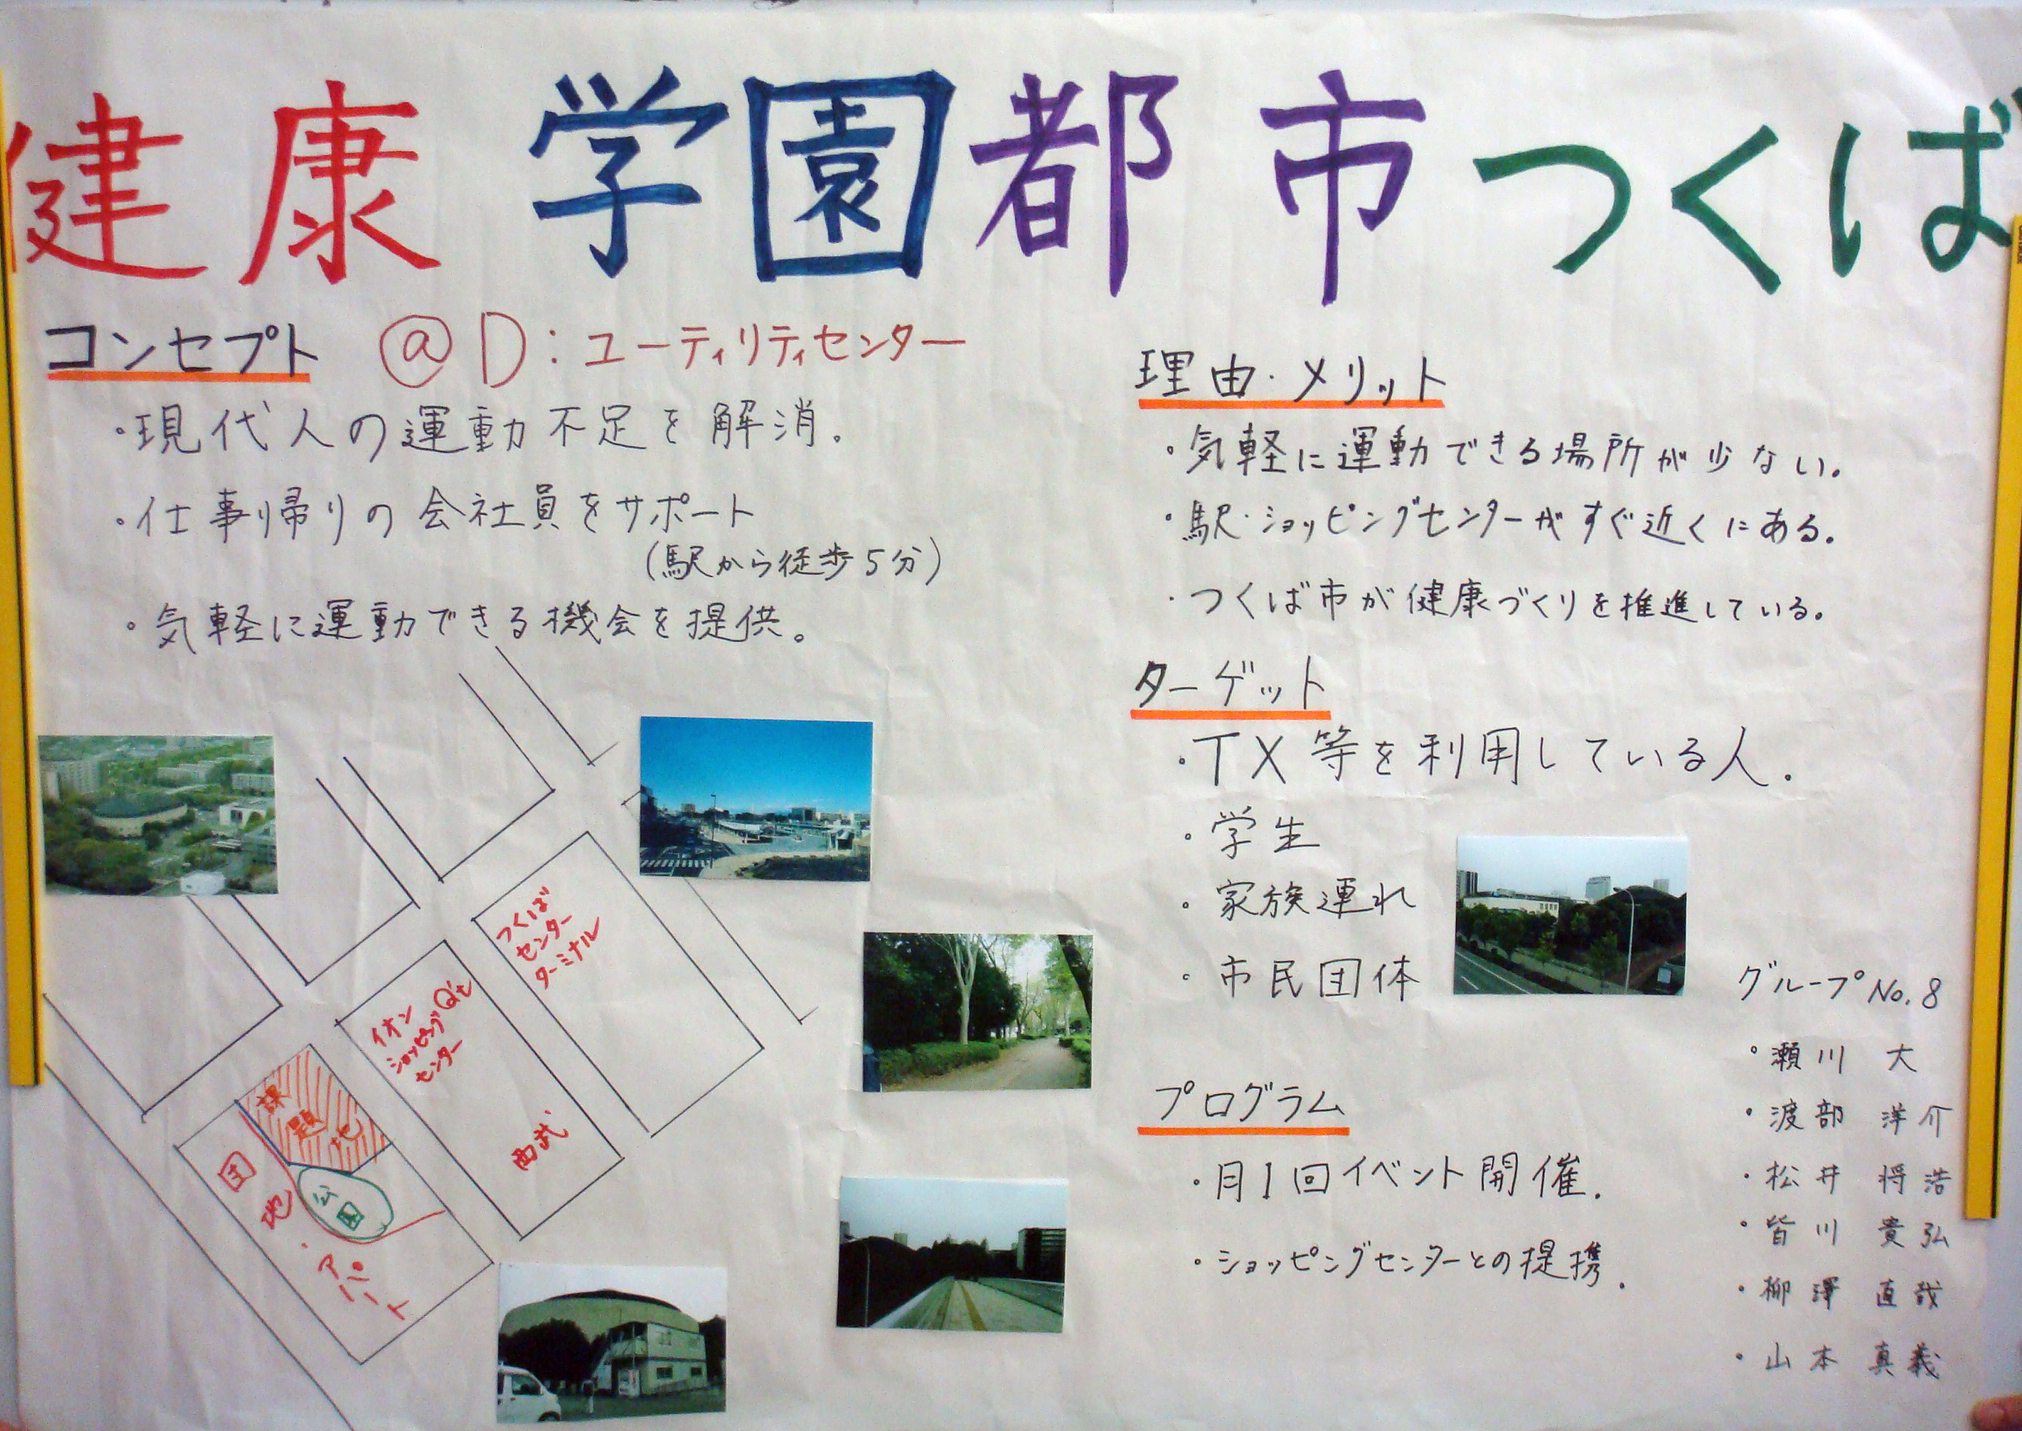 健康 学園都市つくば
コンセプト @D:ユーティリティセンター
・現代人の運動不足を解消.
・仕事帰りの会社員をサポート
(駅から徒歩5分)
・気軽に運動できる機会を提供。
つくば
センター
ターミナル
イオン
ショッピング
センター
Q't
西武
課題地
公園
団地・アパート
理由・メリット
・気軽に運動できる場所が少ない。
・駅・ショッピングセンターがすぐ近くにある。
・つくば市が健康づくりを推進している。
ターゲット
・TX等を利用している人.
・学生
・家族連れ
・市民団体
プログラム
・月1回イベント開催.
・ショッピングセンターとの提携.
グループNo.8
・瀬川 大
・渡部 洋介
・松井 将浩
・皆川 貴弘
・柳澤 直哉
・山本 真義